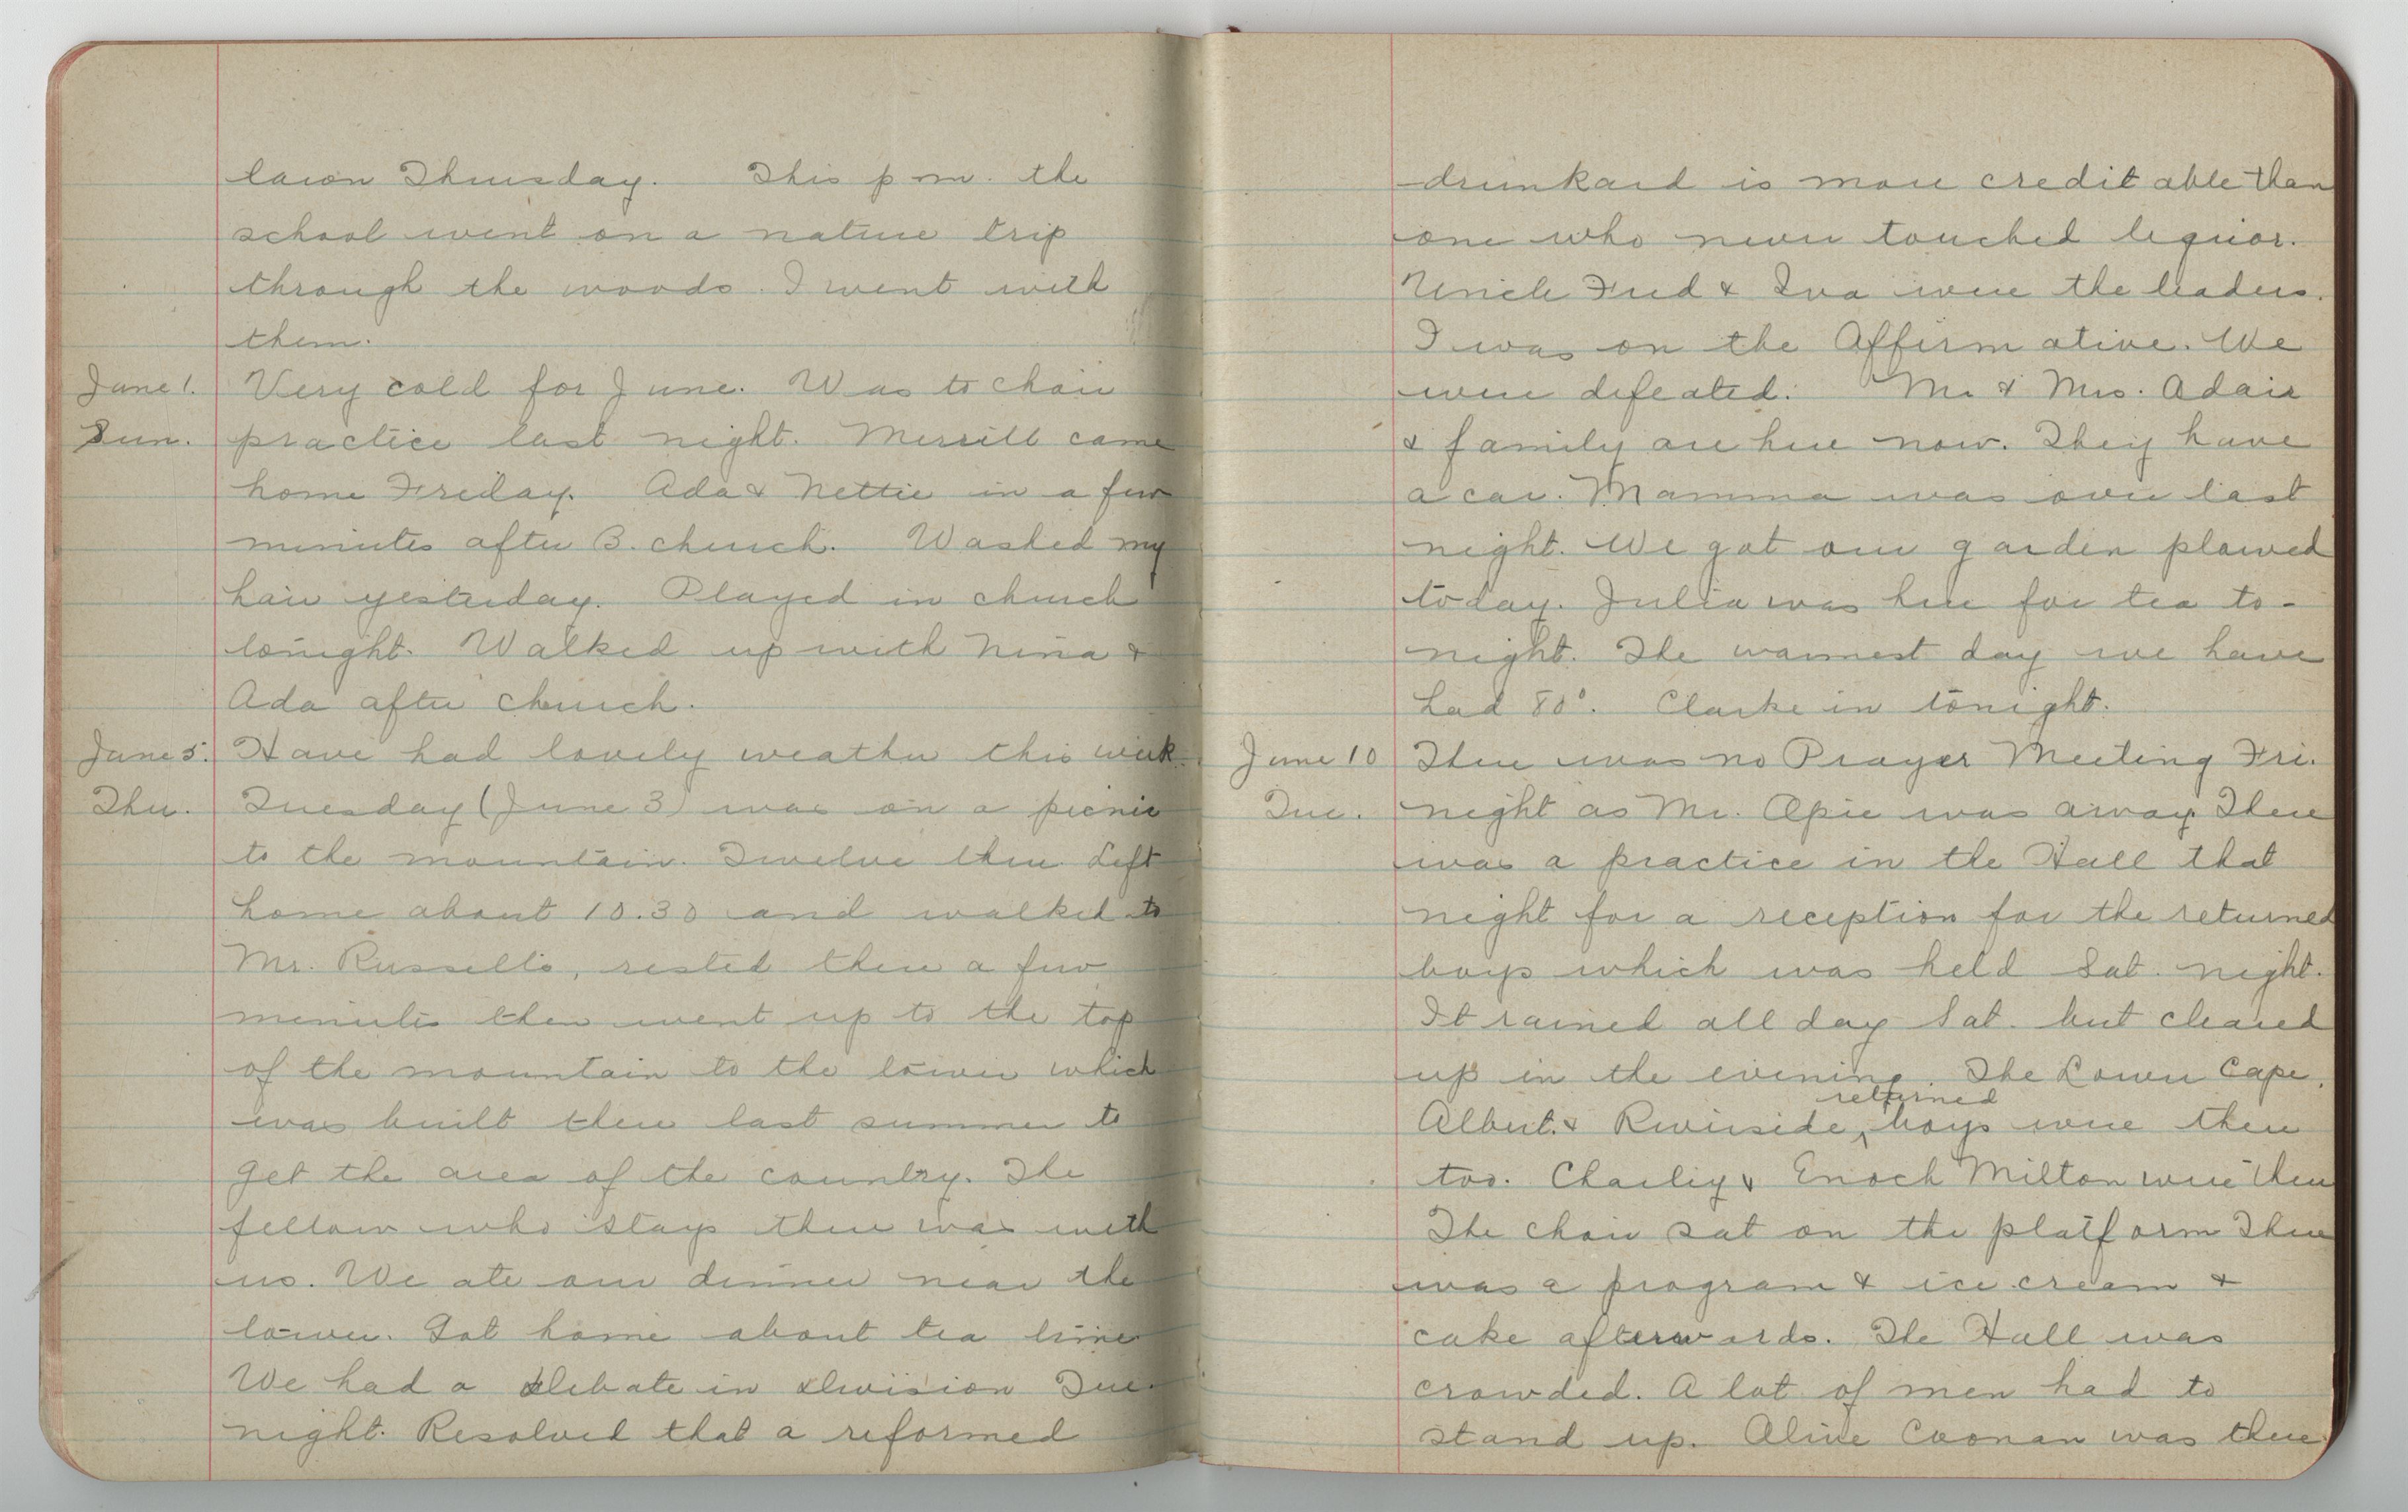 lawn Thursday. This p m. the
school went on a nature trip
through the woods. I went with
them.
June 1. Very cold for June. Was to choir
Sun. practice last night. Merrill came
home Friday. Ada & Nettie in a few
minutes after B. church. Washed my
hair yesterday. Played in church
tonight. Walked up with Nina &
Ada after church.
June 5. Have had lovely weather this week.
Thu. Tuesday (June 3) was on a picnic
to the mountain. Twelve there. Left
home about 10.30 and walked to
Mr. Russells, rested there a few
minutes then went up to the top
of the mountain to the tower which
was built there last summer to
get the area of the country. The
fellow who stays there was with
us. We ate our dinner near the
tower. Got home about tea time
We had a debate in division Tue.
night. Resolved that a reformed
drunkard is more creditable than
one who never touched liquor.
Uncle Fred & Iva were the leaders.
I was on the Affirmative. We
were defeated. Mr. & Mrs. Adair
& family are here now. They have
a car. Mamma was over last
night. We got our garden plowed
today. Julia was here for tea to-
night. The warmest day we have
had 80°. Clarke in tonight.
June 10 There was no Prayer Meeting Fri.
Tue. night as Mr. Opie was away. There
was a practice in the Hall that
night for a reception for the returned
boys which was held Sat. night.
It rained all day Sat. but cleared
up in the evening. The Lower Cape,
Albert & Riverside, returned boys were there
too. Charley & Enoch Milton were there
The choir sat on the platform There
was a program & ice cream &
cake afterwards. The Hall was
crowded. A lot of men had to
stand up. Coonan was there